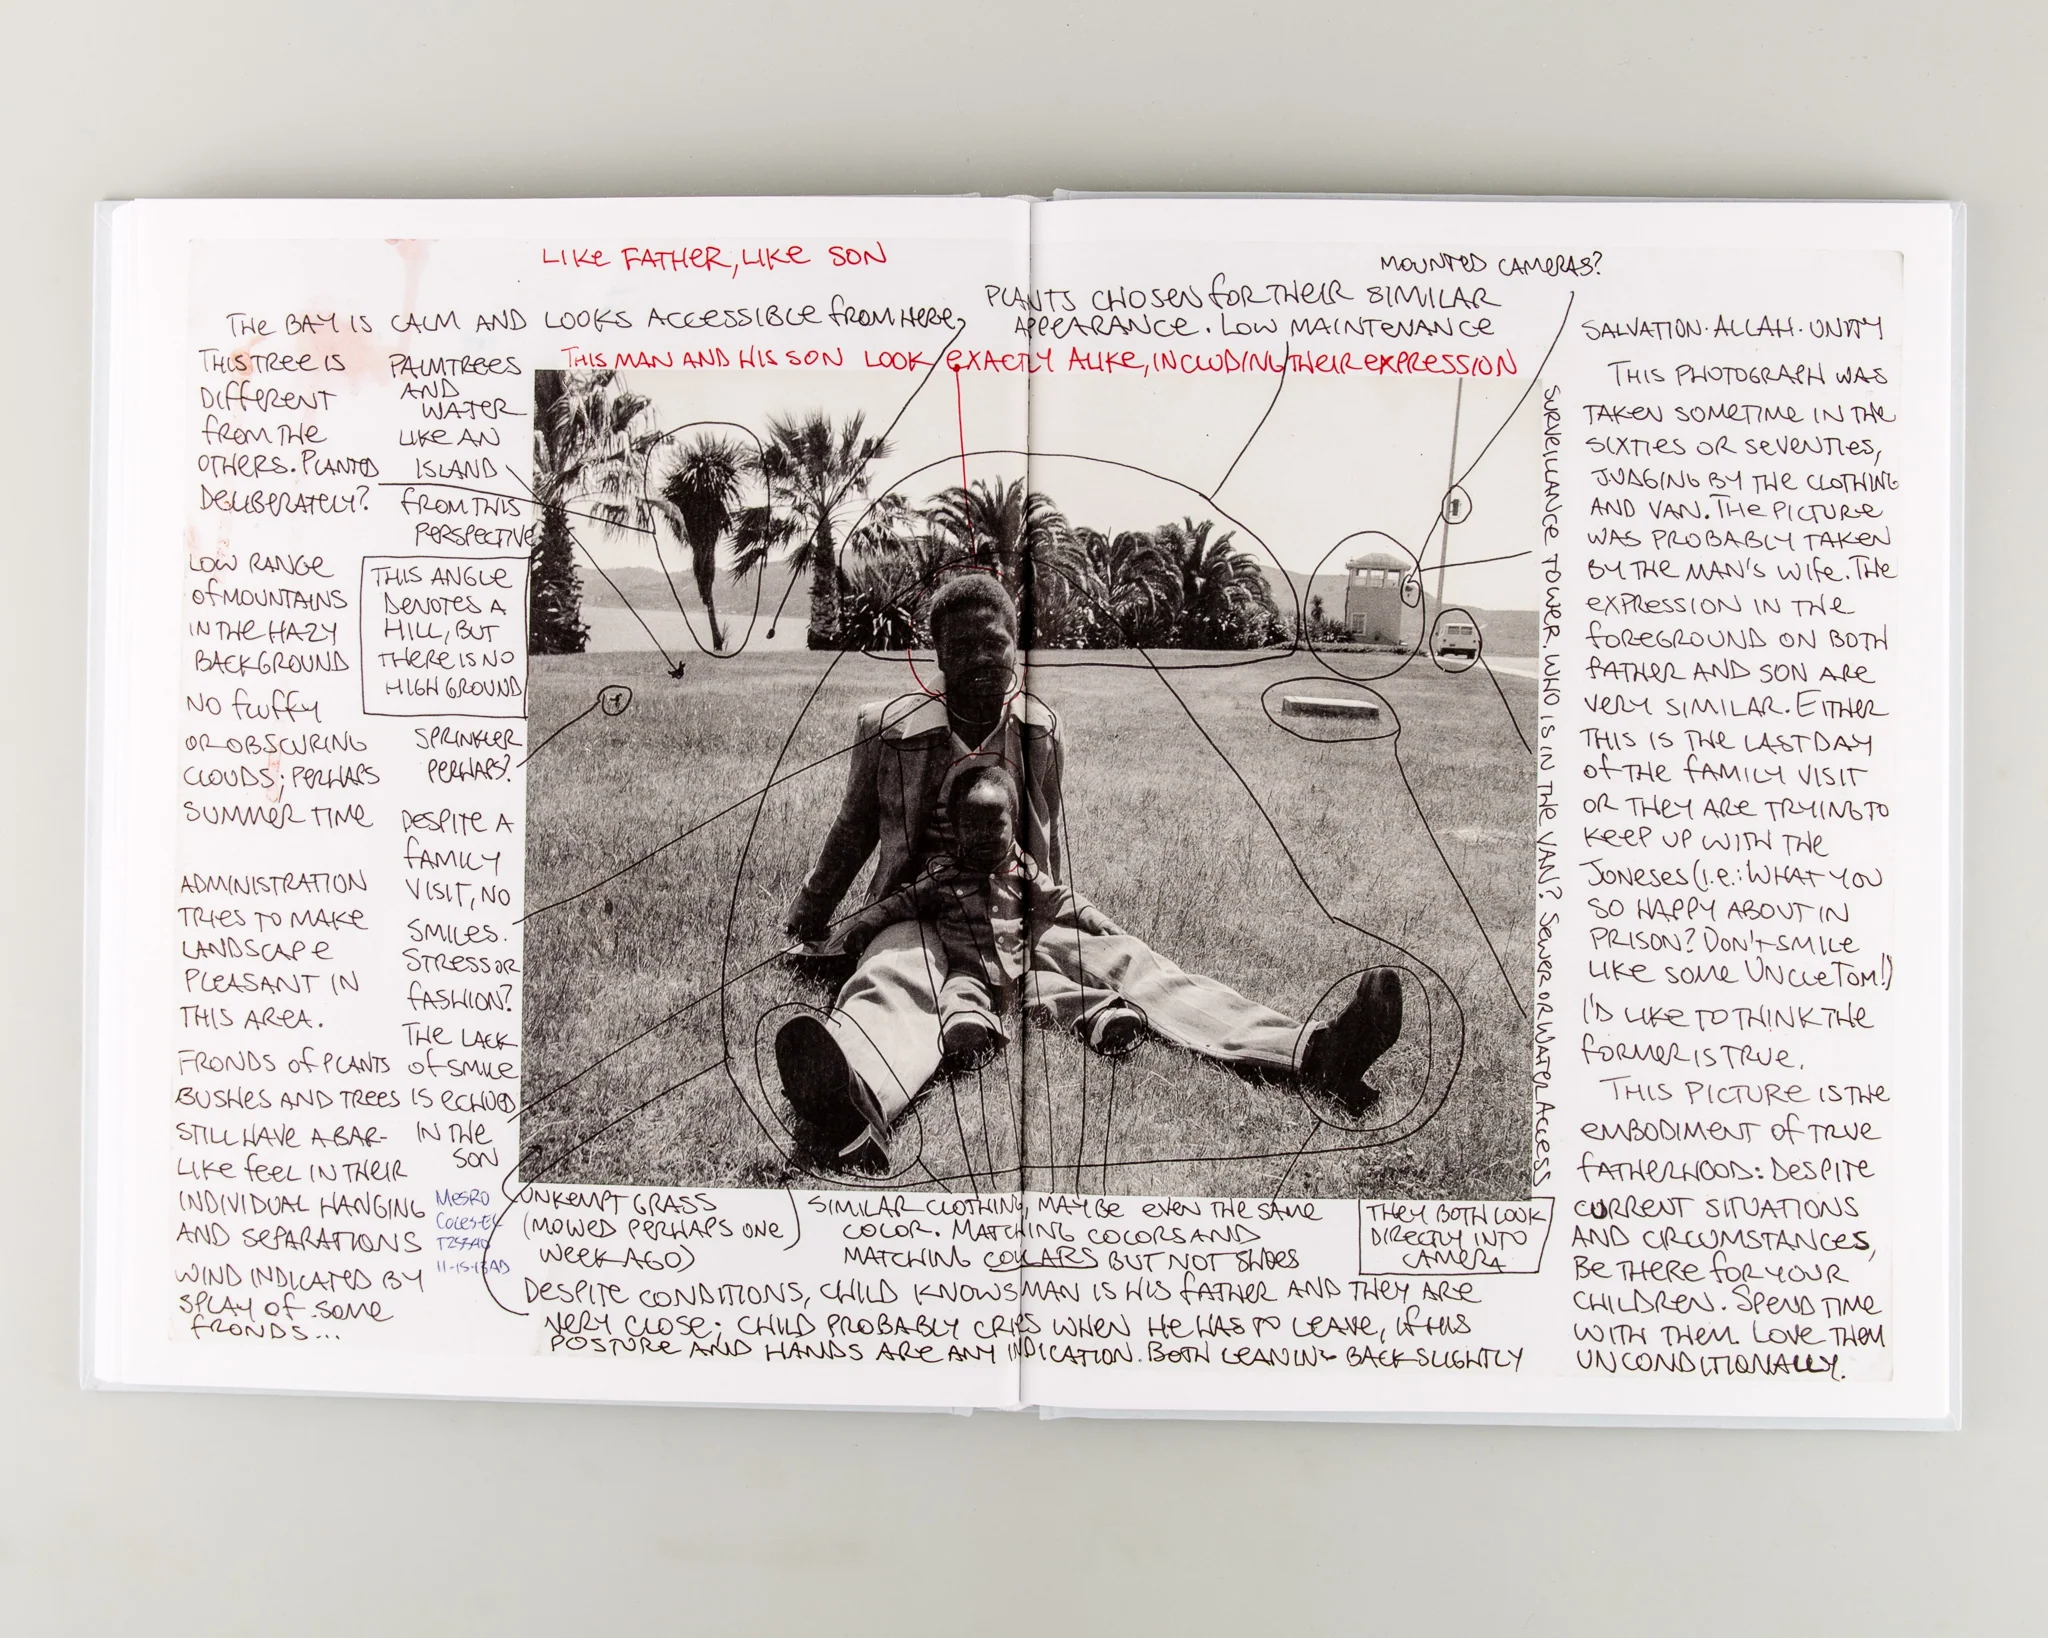 LIKE FATHER, LIKE SON
MOUNTED CAMERAS?
THE BAY IS CALM AND LOOKS ACCESSIBLE FROM HERE,
PLANTS CHOSEN FOR THEIR SIMILAR
APPEARANCE. LOW MAINTENANCE
THIS MAN AND HIS SON LOOK EXACTLY ALIKE, INCLUDING THEIR EXPRESSION
THIS TREE IS
DIFFERENT
FROM THE
OTHERS. PLANTED
DELIBERATELY?
PALMTREES
AND
WATER
LIKE AN
ISLAND
FROM THIS
PERSPECTIVE
LOW RANGE
OF MOUNTAINS
IN THE HAZY
BACKGROUND
THIS ANGLE
DENOTES A
HILL, BUT
THERE IS NO
HIGH GROUND
NO FLUFFY
OR OBSCURING
CLOUDS; PERHAPS
SUMMER TIME
SPRINKLER
PERHAPS?
ADMINISTRATION
TRIES TO MAKE
LANDSCAPE
PLEASANT IN
THIS AREA.
DESPITE A
FAMILY
VISIT, NO
SMILES.
STRESS OR
FASHION?
THE LACK
OF SMILE
IS ECHOED
IN THE
SON
FRONDS OF PLANTS
BUSHES AND TREES
STILL HAVE A BAR-
LIKE FEEL IN THEIR
INDIVIDUAL HANGING
AND SEPARATIONS
WIND INDICATED BY
SPLAY OF SOME
FRONDS...
MESRO
COLES-EL
11-15-13AD
UNKEMPT GRASS
(MOWED PERHAPS ONE
WEEK AGO)
SIMILAR CLOTHING, MAYBE EVEN THE SAME
COLOR. MATCHING COLORS AND
MATCHING COLLARS BUT NOT SHOES
THEY BOTH LOOK
DIRECTLY INTO
CAMERA
DESPITE CONDITIONS, CHILD KNOWS MAN IS HIS FATHER AND THEY ARE
VERY CLOSE; CHILD PROBABLY CRIES WHEN HE HAS TO LEAVE, IF HIS
POSTURE AND HANDS ARE ANY INDICATION. BOTH LEANING BACK SLIGHTLY
SURVEILLANCE TOWER. WHO IS IN THE VAN? SEWER OR WATER ACCESS
SALVATION · ALLAH · UNITY
THIS PHOTOGRAPH WAS
TAKEN SOMETIME IN THE
SIXTIES OR SEVENTIES,
JUDGING BY THE CLOTHING
AND VAN. THE PICTURE
WAS PROBABLY TAKEN
BY THE MAN'S WIFE. THE
EXPRESSION IN THE
FOREGROUND ON BOTH
FATHER AND SON ARE
VERY SIMILAR. EITHER
THIS IS THE LAST DAY
OF THE FAMILY VISIT
OR THEY ARE TRYING TO
KEEP UP WITH THE
JONESES (I.E.: WHAT YOU
SO HAPPY ABOUT IN
PRISON? DON'T SMILE
LIKE SOME UNCLE TOM!)
I'D LIKE TO THINK THE
FORMER IS TRUE.
THIS PICTURE IS THE
EMBODIMENT OF TRUE
FATHERHOOD: DESPITE
CURRENT SITUATIONS
AND CIRCUMSTANCES,
BE THERE FOR YOUR
CHILDREN. SPEND TIME
WITH THEM. LOVE THEM
UNCONDITIONALLY.